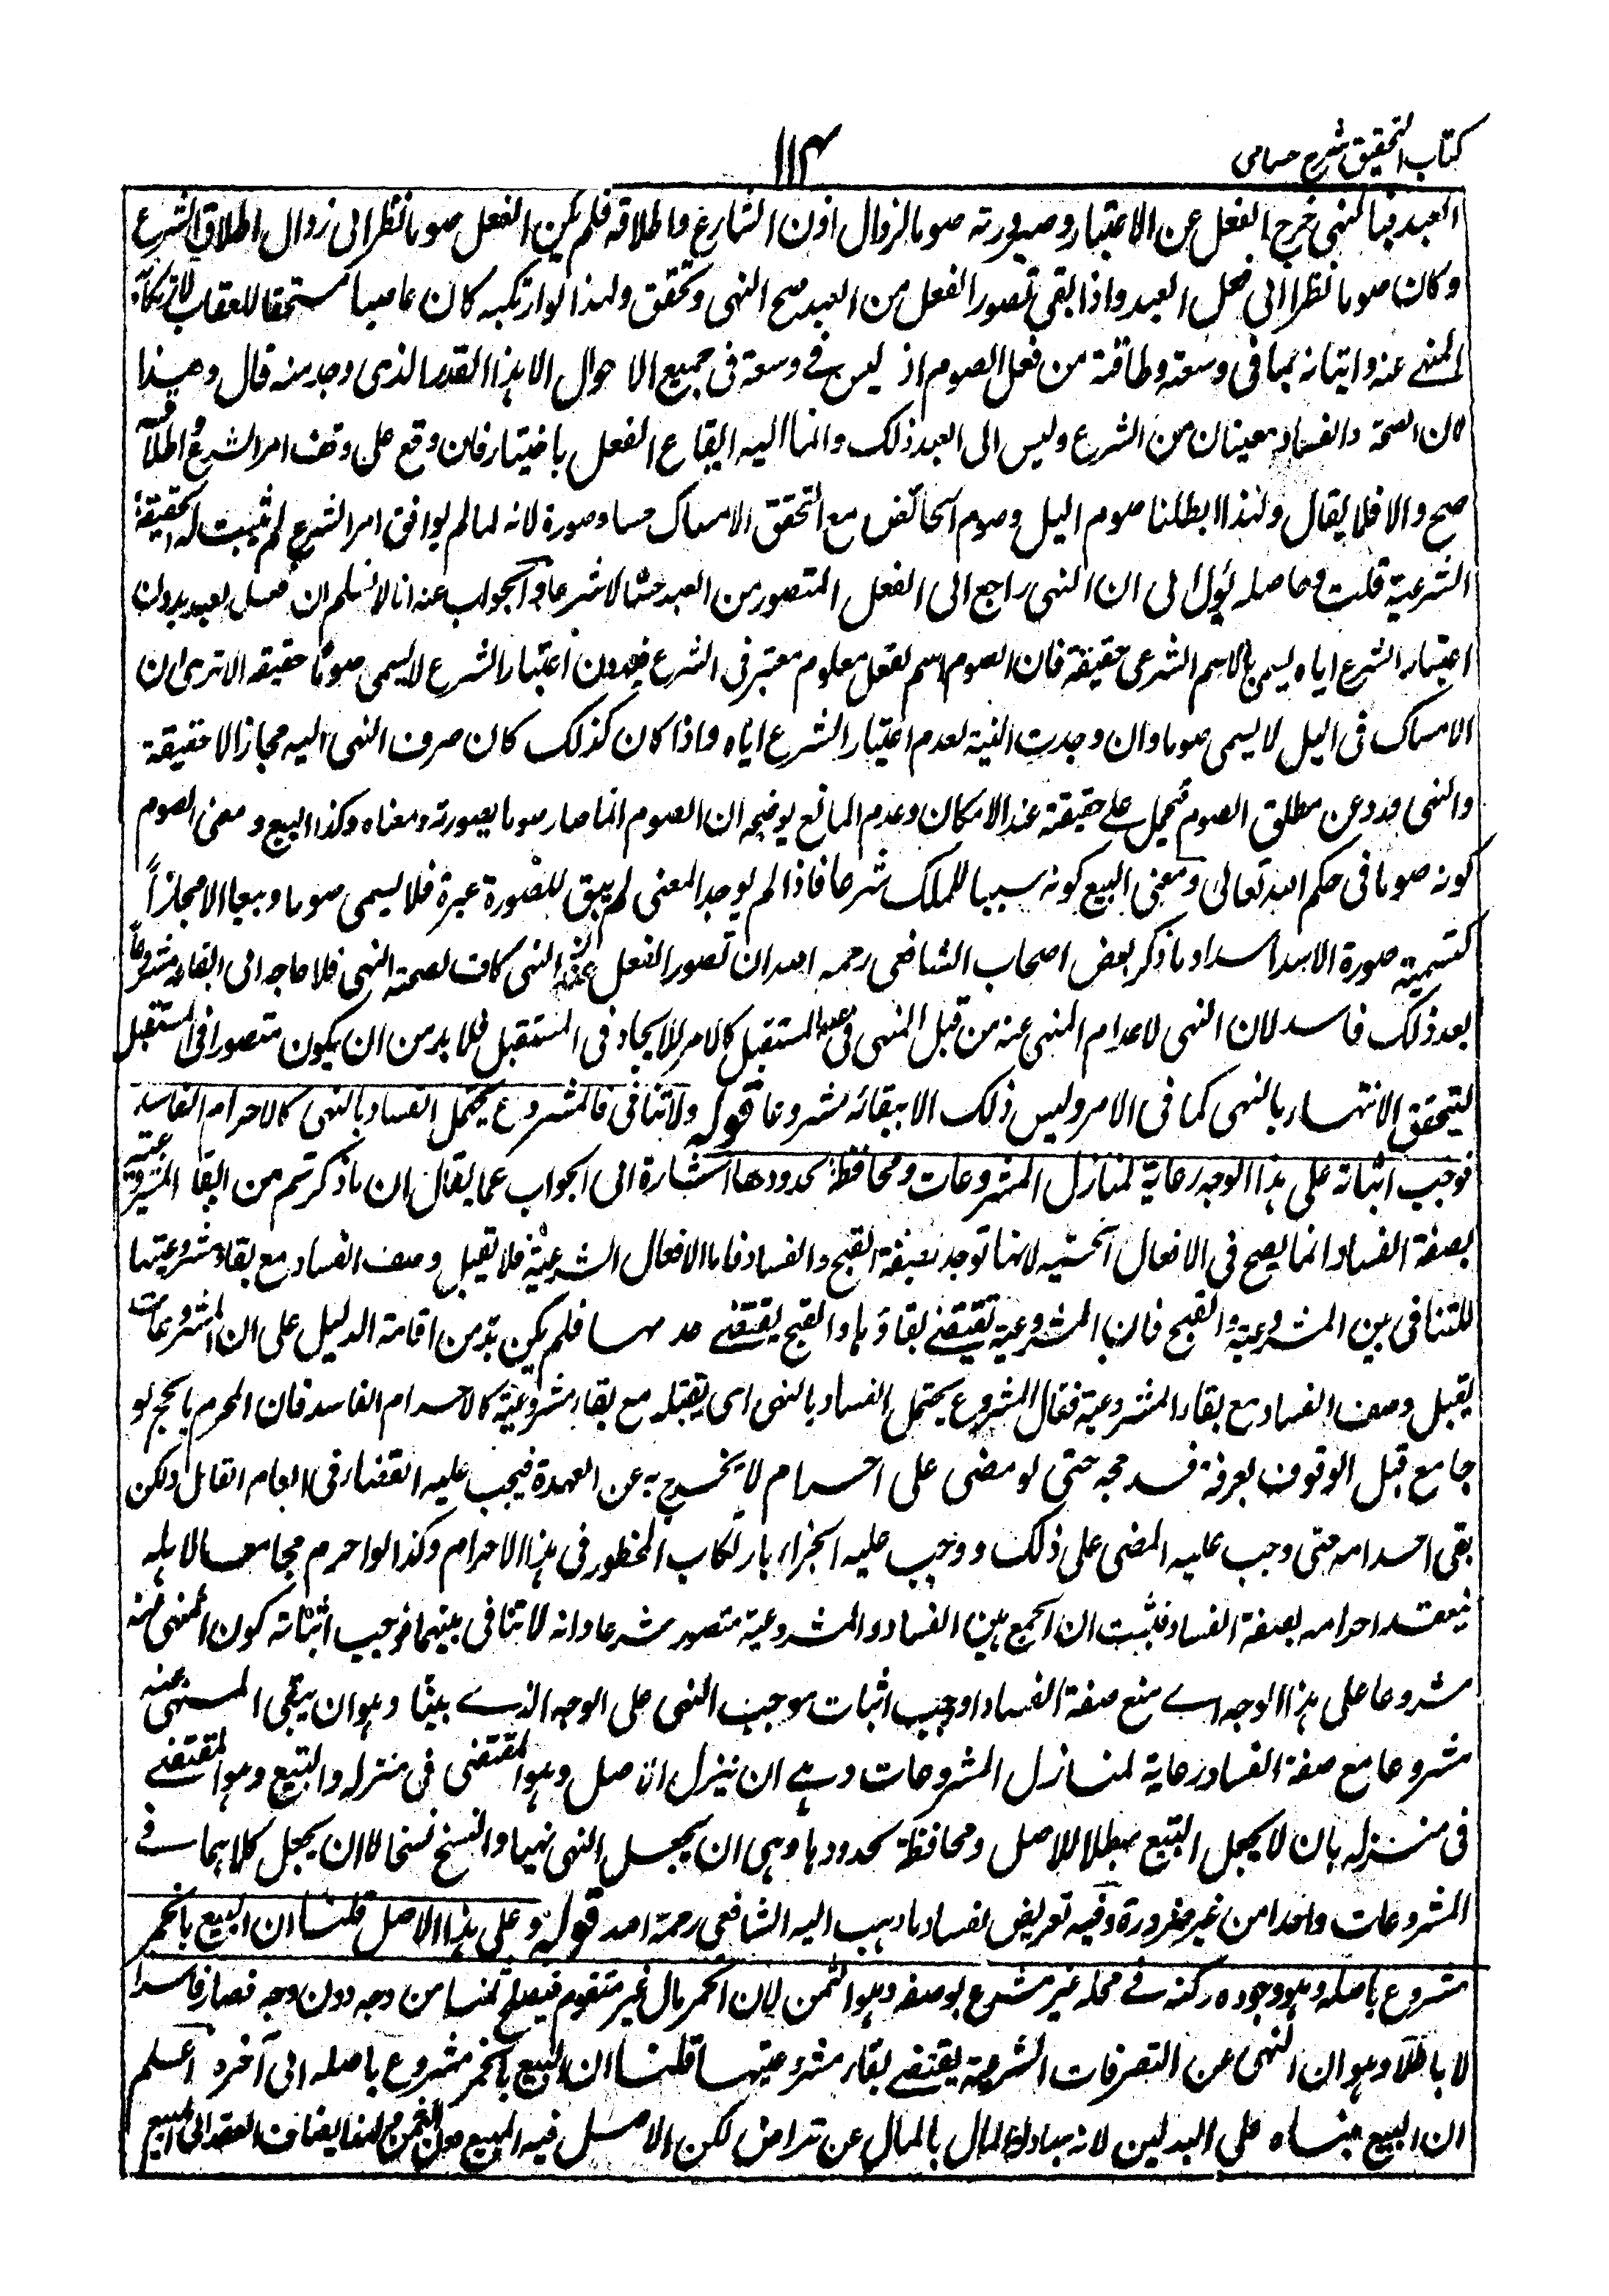 كتاب التحقيق شرح حسامى
١١٤
العبد فبالنهى خرج الفعل عن الاعتبار وصيرورته صوما لزوال اذن الشارع واطلاقه فلم يكن الفعل صوما نظرا الى زوال اطلاق الشرع
وكان صوما نظرا الى فعل العبد واذا بقى تصور الفعل من العبد صح النهى وتحقق ولهذا لو ارتكبه كان عاصيا مستحقا للعقاب لارتكابه
المنهى عنه واتيانه بما فى وسعه وطاقته من فعل الصوم اذ ليس فى وسعه فى جميع الاحوال الا هذا القدر الذى وجد منه قال وهذا
لان الصحة والفساد معنيان من الشرع وليس الى العبد ذلك وانما اليه ايقاع الفعل باختياره فان وقع على وفق امر الشرع واطلاقه
صح والا فلا يقال ولهذا ابطلنا صوم اليل وصوم الحائض مع تحقق الامساك حسا وصورة لانه لما لم يوافق امر الشرع لم يثبت له الحقيقة
الشرعية قلت وحاصله يؤل الى ان النهى راجع الى الفعل المتصور من العبد حسا لا شرعا والجواب عنه انا لا نسلم ان فعل العبد بدون
اعتبار الشرع اياه يسمى بالاسم الشرعى حقيقة فان الصوم اسم لفعل معلوم معتبر فى الشرع فبدون اعتبار الشرع لا يسمى صوما حقيقة الا ترى ان
الامساك فى اليل لا يسمى صوما وان وجدت النية لعدم اعتبار الشرع اياه واذا كان كذلك كان صرف النهى اليه مجازا لا حقيقة
والنهى ورد عن مطلق الصوم فيحمل على حقيقته عند الامكان وعدم المانع يوضحه ان الصوم انما صار صوما بصورته ومعناه وكذا البيع ومعنى الصوم
كونه صوما فى حكم الله تعالى ومعنى البيع كونه سببا للملك شرعا فاذا لم يوجد المعنى لم يبق للصورة عبرة فلا يسمى صوما وبيعا الا مجازاً
كتسمية صورة الاسد اسدا وما ذكر بعض اصحاب الشافعى رحمه الله ان تصور الفعل عند النهى كاف لصحة النهى فلا حاجه الى ابقائه مشروعاً
بعد ذلك فاسد لان النهى لاعدام المنهى عنه من قبل المنهى فى المستقبل كالامر للايجاد فى المستقبل فلا بد من ان يكون متصورا فى المستقبل
ليتحقق الانتهاء بالنهى كما فى الامر وليس ذلك الا ببقائه مشروعا قوله ولا تنافى فالمشروع يحتمل الفساد بالنهى كالاحرام الفاسد
فوجب اثباته على هذا الوجه رعاية لمنازل المشروعات ومحافظة لحدودها اشارة الى الجواب عما يقال ان ما ذكرتم من ابقاء المشروعية
بصفة الفساد انما يصح فى الافعال الحسيه لانها توجد بصفة القبح والفساد فاما الافعال الشرعية فلا تقبل وصف الفساد مع بقاء مشروعيتها
للتنافى بين المشروعية والقبح فان المشروعية تقتضى بقاؤها والقبح يقتضى عدمها فلم يكن بد من اقامة الدليل على ان المشروعات
يقبل وصف الفساد مع بقاء المشروعية فقال المشروع يحتمل الفساد بالنهى اى يقبله مع بقاء مشروعيته كالاحرام الفاسد فان المحرم بالحج لو
جامع قبل الوقوف بعرفة فسد حجه حتى لو مضى على احرام لا يخرج به عن العهدة فيجب عليه القضاء فى العام القابل ولكن
بقى احرامه حتى وجب عليه المضى على ذلك ووجب عليه الجزاء بارتكاب المحظور فى هذا الاحرام وكذا لو احرم مجامعا لاهله
ينعقد احرامه بصفة الفساد فثبت ان الجمع بين الفساد والمشروعية متصور شرعا وانه لا تنافى بينهما فوجب اثباته كون المنهى عنه
مشروعا على هذا الوجه اى مع صفة الفساد او وجب اثبات موجب النهى على الوجه الذى بينا وهو ان يبقى المنهى عنه
مشروعا مع صفة الفساد رعاية لمنازل المشروعات وهى ان ينزل الاصل وهو المقتضى فى منزله والتبع وهو المقتضى
فى منزله بان لا يجعل التبع مبطلا للاصل ومحافظة لحدودها وهى ان يجعل النهى نهيا والنسخ نسخا لا ان يجعل كلاهما فى
المشروعات واحدا من غير ضرورة وفيه تعريض لفساد ما ذهب اليه الشافعى رحمه الله قوله وعلى هذا الاصل قلنا ان البيع بالخمر
مشروع باصله وهو وجوده ركنه فى محله غير مشروع بوصفه وهو الثمن لان الخمر مال غير متقوم فيصلح ثمنا من وجه دون وجه فصار فاسدا
لا باطلا وهو ان النهى عن التصرفات الشرعية يقتضى بقاء مشروعيتها قلنا ان البيع بالخمر مشروع باصله الى آخره اعلم
ان البيع مبناه على البدلين لانه مبادلة المال بالمال عن تراض لكن الاصل فيه المبيع دون الثمن ولهذا يضاف العقد الى المبيع